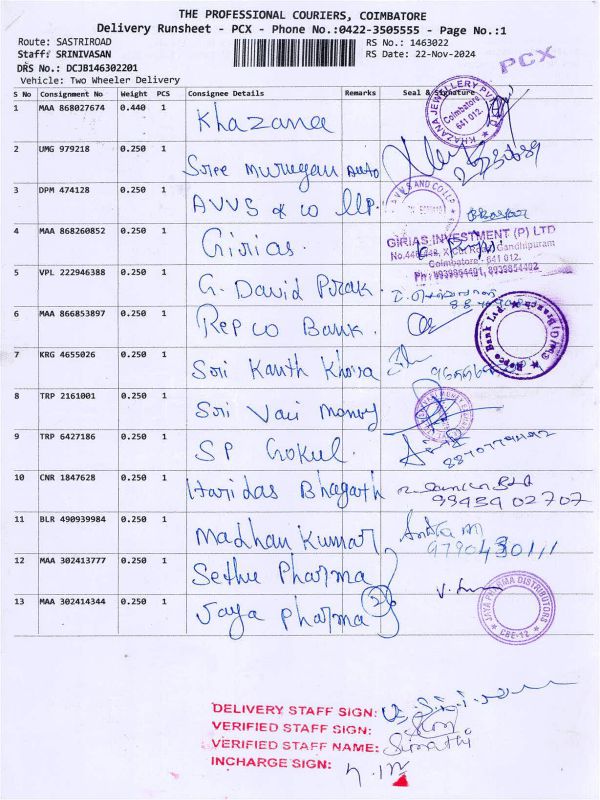 THE PROFESSIONAL COURIERS, COIMBATORE
Delivery Runsheet - PCX - Phone No.:0422-3505555 - Page No.:1
Route: SASTRIROAD
RS No.: 1463022
Staff: SRINIVASAN
RS Date: 22-Nov-2024
PCX
DRS No.: DCJB146302201
Vehicle: Two Wheeler Delivery
S No Consignment No Weight PCS Consignee Details Remarks Seal & Signature
1 MAA 868027674 0.440 1 Khazana
KHAZANA JEWELLERY PVT LTD Coimbatore 641 012.
2 UMG 979218 0.250 1 Sree murugan Auto
3 DPM 474128 0.250 1 AVVS & co llp.
AVVS AND CO LLP
Bhaskar
4 MAA 868260852 0.250 1 Girias.
GIRIAS INVESTMENT (P) LTD
Gandhipuram
Coimbatore - 641 012.
5 VPL 222946388 0.250 1 G. David
6 MAA 866853897 0.250 1 Repco Bank.
Repco Bank Ltd.
7 KRG 4655026 0.250 1 Sri Kanth
8 TRP 2161001 0.250 1 Sri Vari money
9 TRP 6427186 0.250 1 SP Gokul.
10 CNR 1847628 0.250 1 Haridas Bhagath
11 BLR 490939984 0.250 1 Madhan Kumar
12 MAA 302413777 0.250 1 Sethu Pharma
13 MAA 302414344 0.250 1 Jaya Pharma
JAYA PHARMA DISTRIBUTORS CBE-12
DELIVERY STAFF SIGN:
VERIFIED STAFF SIGN:
VERIFIED STAFF NAME:
INCHARGE SIGN: